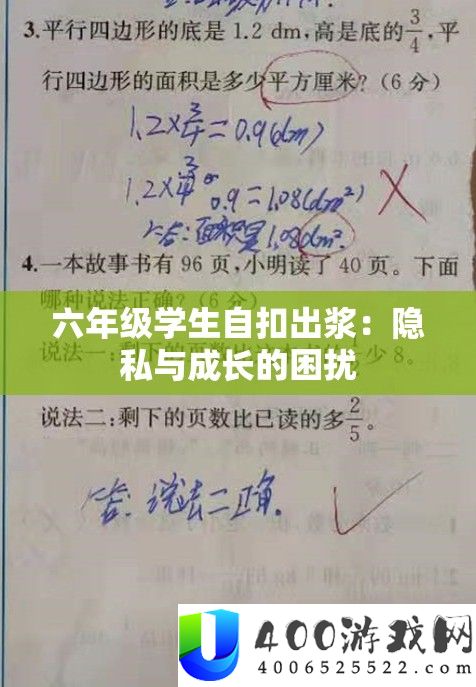 3.平行四边形的底是 1.2 dm,高是底的3/4,平
行四边形的面积是多少平方厘米?(6分)
1.2×3/4=0.9(dm)
0.9=1.08(dm²)
答:面积是1.08dm².
4.一本故事书有 96 页,小明读了 40 页。下面
哪种说法正确?(6分)
六年级学生自扣出浆：隐
私与成长的困扰
少 8。
说法二:剩下的页数比已读的多2/5。
答:说法二正确.
400游戏网
4006525522.com